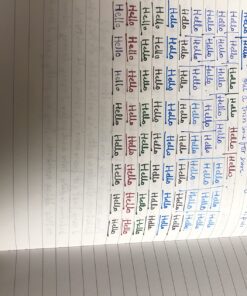 Hello Hello
Hello Hello Hello Hello Hello
Hello Hello Hello Hello Hello Hello Hello
Hello Hello Hello Hello Hello Hello Hello Hello
Hello Hello Hello Hello Hello Hello Hello Hello
Hello Hello Hello Hello Hello Hello Hello Hello
Hello Hello Hello Hello Hello Hello Hello Hello
Hello Hello Hello Hello Hello Hello Hello Hello
Hello Hello Hello Hello Hello Hello Hello Hello
Hello Hello Hello Hello Hello Hello Hello Hello
Hello Hello Hello Hello Hello Hello Hello Hello